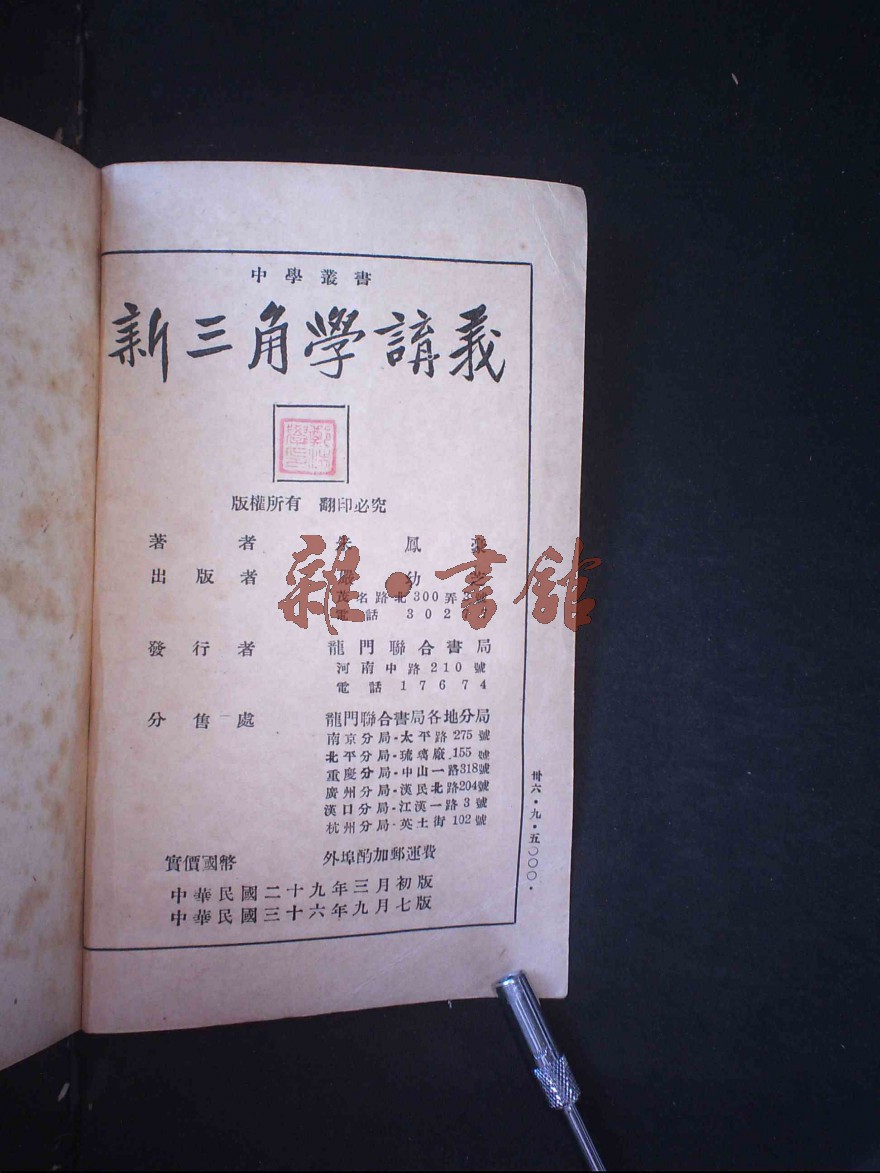 中學叢書
新三角學講義
版權所有 翻印必究
著者 朱鳳豪
出版者 嚴幼芝
茂名路北300弄3號
電話 302
發行者 龍門聯合書局
河南中路210號
電話 17674
分售處 龍門聯合書局各地分局
南京分局·太平路275號
北平分局·琉璃廠155號
重慶分局·中山一路318號
廣州分局·漢民北路204號
漢口分局·江漢一路3號
杭州分局·英士街102號
實價國幣 外埠酌加郵運費
中華民國二十九年三月初版
中華民國三十六年九月七版
卅六·九·五〇〇〇·
雜·書館